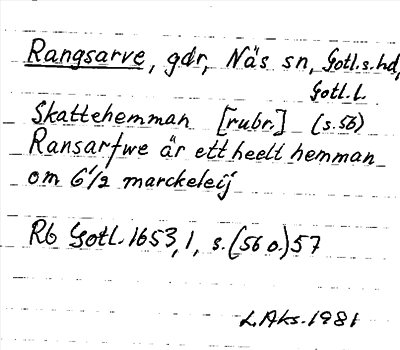 Rangsarve, gdr, Näs sn, Gotl.s.hd,
Gotl.l.
Skattehemman [rubr.] (s.56)
Ransarfwe är ett heelt hemman
om 6 1/2 marckeleij
Rb Gotl. 1653,1, s.(56 o.) 57
L.Aks. 1981